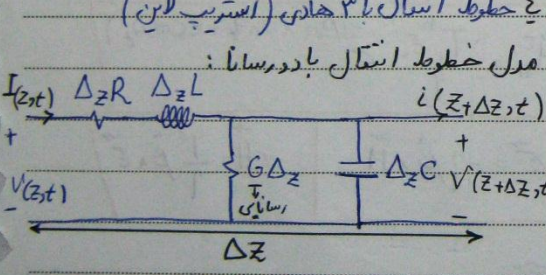 خطوط انتقال با ۳ هادی (استریپ لاین)
مدل خطوط انتقال با دو رسانا :
I(z,t) ΔzR ΔzL i(z+Δz,t)
+ +
V(z,t) GΔz ΔzC V(z+Δz,t
رسانایی
- -
Δz